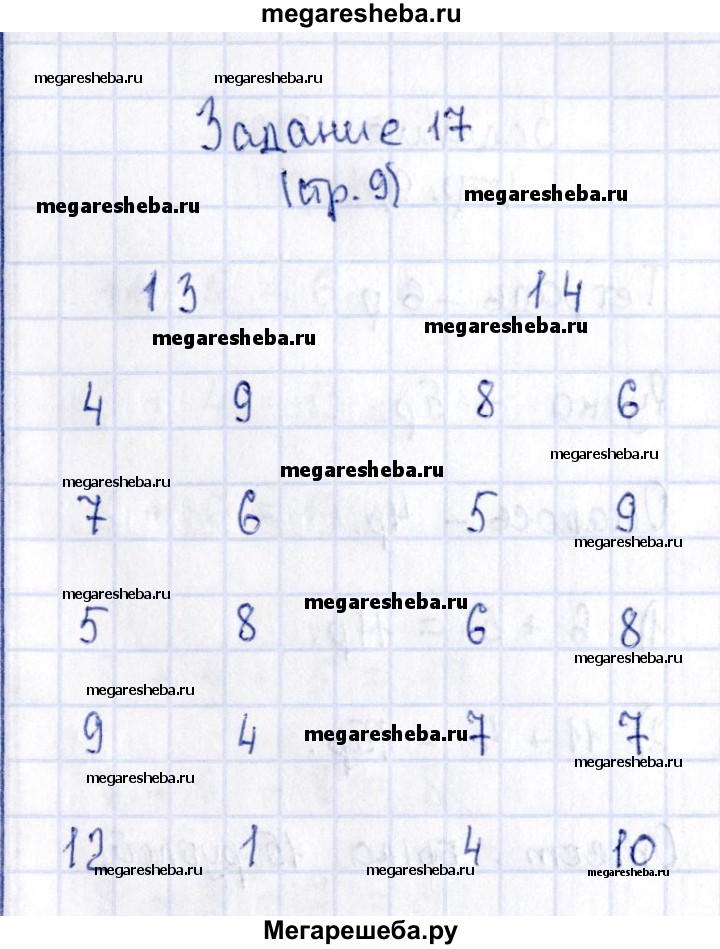 megaresheba.ru
megaresheba.ru megaresheba.ru
Задание 17
megaresheba.ru (стр. 9) megaresheba.ru
13 14
megaresheba.ru megaresheba.ru
4 9 8 6
megaresheba.ru
megaresheba.ru
megaresheba.ru
7 6 5 9
megaresheba.ru
megaresheba.ru megaresheba.ru
5 8 6 8
megaresheba.ru
megaresheba.ru
9 4 megaresheba.ru 7 7
megaresheba.ru
megaresheba.ru
12 1 4 10
megaresheba.ru megaresheba.ru megaresheba.ru
Мегарешеба.ру